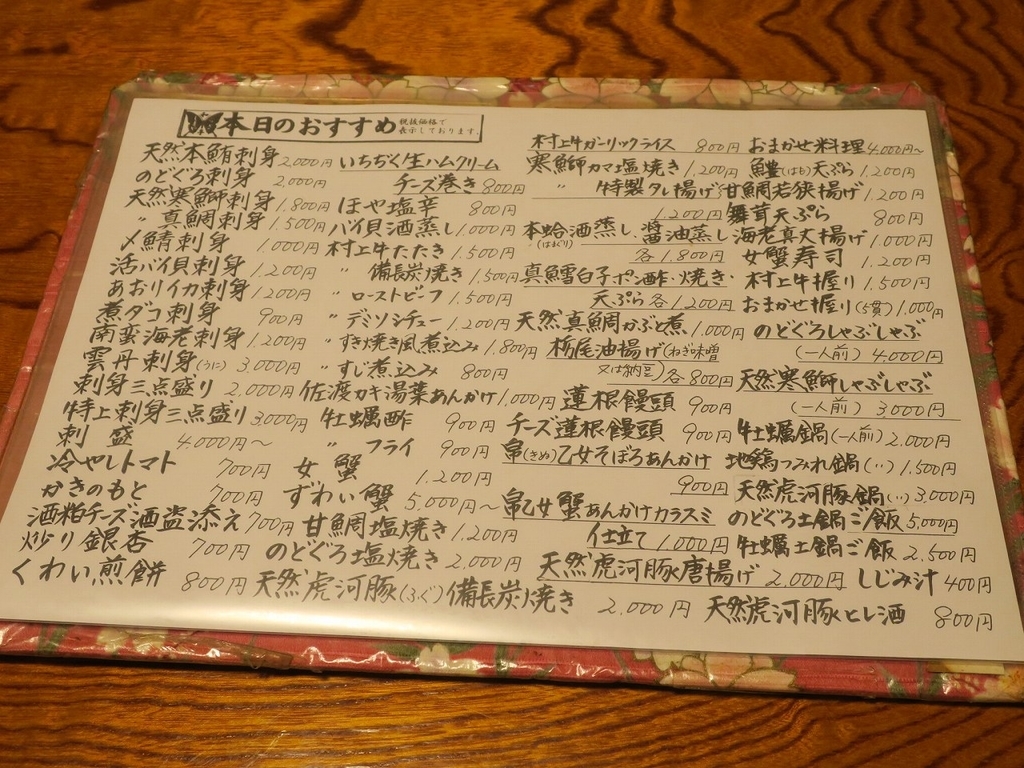 本日のおすすめ 税抜価格で
表示しております。
天然本鮪刺身 2,000円
のどぐろ刺身 2,000円
天然寒鰤刺身 1,800円
〃 真鯛刺身 1,500円
〆鯖刺身 1,000円
活バイ貝刺身 1,200円
あおりイカ刺身 1,200円
煮ダコ刺身 900円
南蛮海老刺身 1,200円
雲丹刺身(うに) 3,000円
刺身三点盛り 2,000円
特上刺身三点盛り 3,000円
刺盛 4,000円~
冷やしトマト 700円
かきのもと 700円
酒粕チーズ酒盗添え 700円
炒り銀杏 700円
くわい煎餅 800円
いちぢく生ハムクリーム
チーズ巻き 800円
ほや塩辛 800円
バイ貝酒蒸し 1,000円
村上牛たたき 1,500円
〃 備長炭焼き 1,500円
〃 ローストビーフ 1,500円
〃 デミソシチュー 1,200円
〃 すき焼き風煮込み 1,800円
〃 すじ煮込み 800円
佐渡カキ湯葉あんかけ 1,000円
牡蠣酢 900円
〃 フライ 900円
女蟹 1,200円
ずわい蟹 5,000円~
甘鯛塩焼き 1,200円
のどぐろ塩焼き 2,000円
天然虎河豚(ふぐ)備長炭焼き 2,000円
村上牛ガーリックライス 800円
寒鰤カマ塩焼き 1,200円
〃 特製タレ揚げ
1,200円
本蛤酒蒸し、醤油蒸し
(はまぐり) 各1,800円
真鱈白子ポン酢・焼き・
天ぷら各1,200円
天然真鯛かぶと煮 1,000円
栃尾油揚げ(ねぎ味噌
又は納豆)各800円
蓮根饅頭 900円
チーズ蓮根饅頭 900円
帛(きぬ)乙女そぼろあんかけ
900円
帛乙女蟹あんかけカラスミ
仕立て 1,000円
天然虎河豚唐揚げ 2,000円
おまかせ料理 4,000円~
鱧(はも)天ぷら 1,200円
甘鯛若狭揚げ 1,200円
舞茸天ぷら 800円
海老真丈揚げ 1,000円
女蟹寿司 1,200円
村上牛握り 1,500円
おまかせ握り(5貫) 1,000円
のどぐろしゃぶしゃぶ
(一人前) 4,000円
天然寒鰤しゃぶしゃぶ
(一人前) 3,000円
牡蠣鍋(一人前) 2,000円
地鶏つみれ鍋(〃) 1,500円
天然虎河豚鍋(〃) 3,000円
のどぐろ土鍋ご飯 5,000円
牡蠣土鍋ご飯 2,500円
しじみ汁 400円
天然虎河豚ヒレ酒 800円